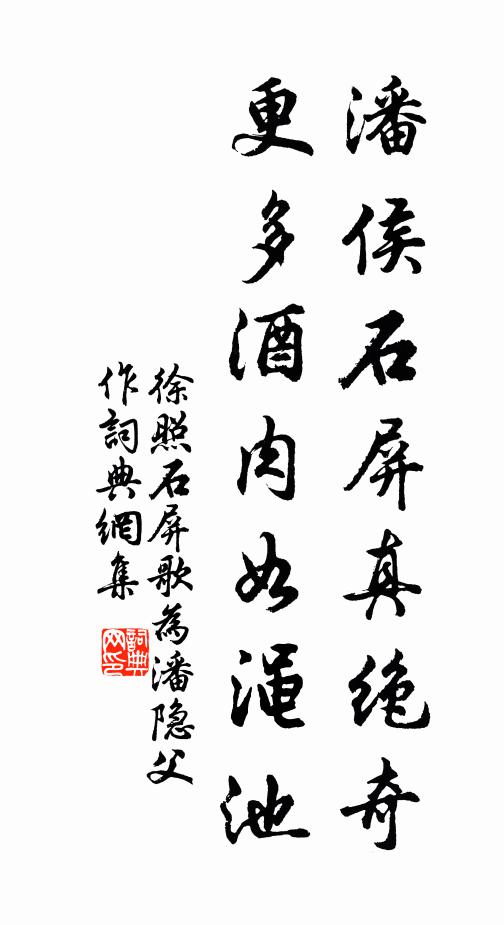 潘侯石屏真絶奇
更多酒肉如渑池
徐照石屏歌為潘隐父
作詞典網集
詞典网印